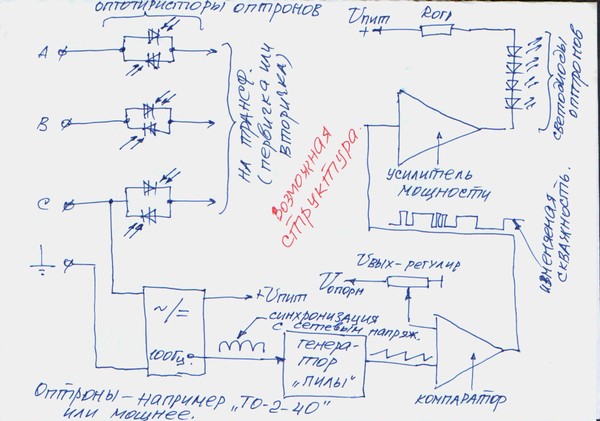 оптотиристоры оптронов
A
B
C
на трансф.
(первичка или
вторичка)
Возможная
структура.
Uпит
+
Rогр
светодиоды
оптронов
усилитель
мощности
изменяемая
скважность.
Uвых-регулир
Uопорн
~/=
100Гц
+Uпит
синхронизация
с сетевым напряж.
генера-
тор
„пилы"
компаратор
Оптроны – например „ТО-2-40"
или мощнее.